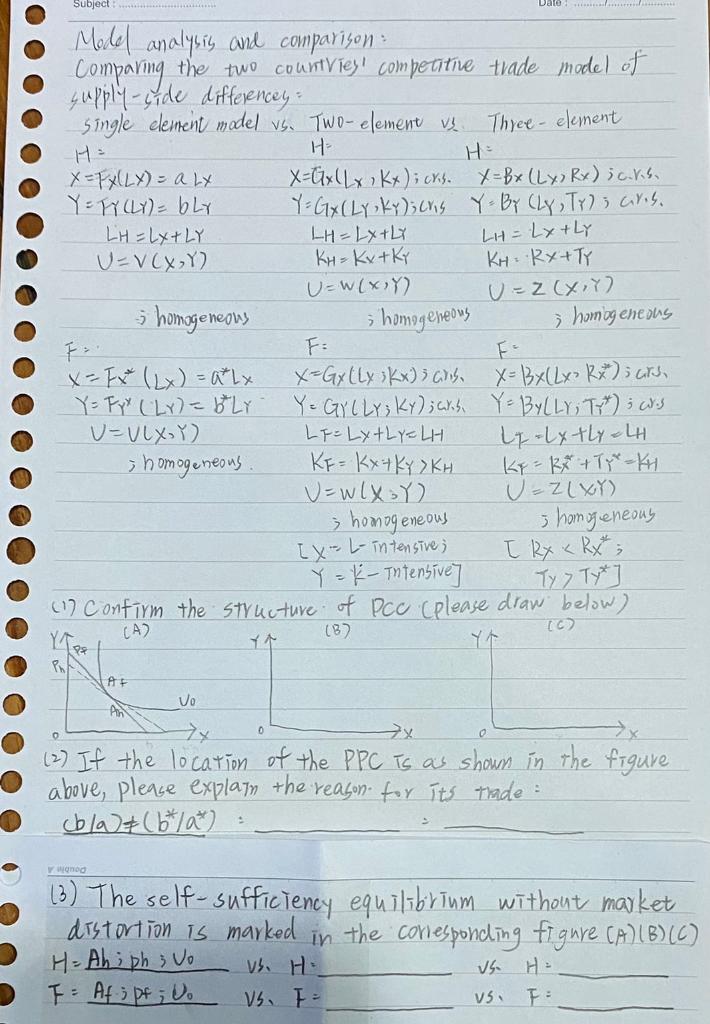 Subject :
Date :
Model analysis and comparison:
Comparing the two countries' competitive trade model of
supply-side differences:
single element model vs. Two-element vs. Three-element
H: H: H:
X=Fx(Lx) = a Lx X=Gx(Lx, Kx); crs. X=Bx(Lx, Rx); c.r.s.
Y=Fy(Ly) = bLy Y=Gx(Ly, Ky); crs Y=By(Ly, Ty); c.r.s.
LH=Lx+Ly LH=Lx+Ly LH=Lx+Ly
U=V(X,Y) KH=Kx+Ky KH=Rx+Ty
U=W(X,Y) U=Z(X,Y)
; homogeneous ; homogeneous ; homogeneous
F: F: F:
X=Fx*(Lx) = a*Lx X=Gx(Lx; Kx); c.r.s. X=Bx(Lx, Rx*); c.r.s.
Y=Fy*(Ly) = b*Ly Y=Gy(Ly; Ky); c.r.s. Y=By(Ly, Ty*); c.r.s
U=V(X,Y) LF=Lx+Ly=LH LF=Lx+Ly=LH
; homogeneous. KF=Kx+Ky>KH KF=Rx*+Ty*=KH
U=W(X,Y) U=Z(X,Y)
; homogeneous ; homogeneous
[X=L-intensive; [Rx<Rx*;
Y=K-Intensive] Ty>Ty*]
(1) Confirm the structure of PCC (please draw below)
(A) (B) (C)
Y Y Y
Pf
Ph
Af
Ah Uo
o X o X o X
(2) If the location of the PPC is as shown in the figure
above, please explain the reason for its trade:
(b/a)≠(b*/a*) : :
Double A
(3) The self-sufficiency equilibrium without market
distortion is marked in the corresponding figure (A)(B)(C)
H= Ah; ph; Uo vs. H: vs. H:
F= Af; pf; Uo vs. F= vs. F: